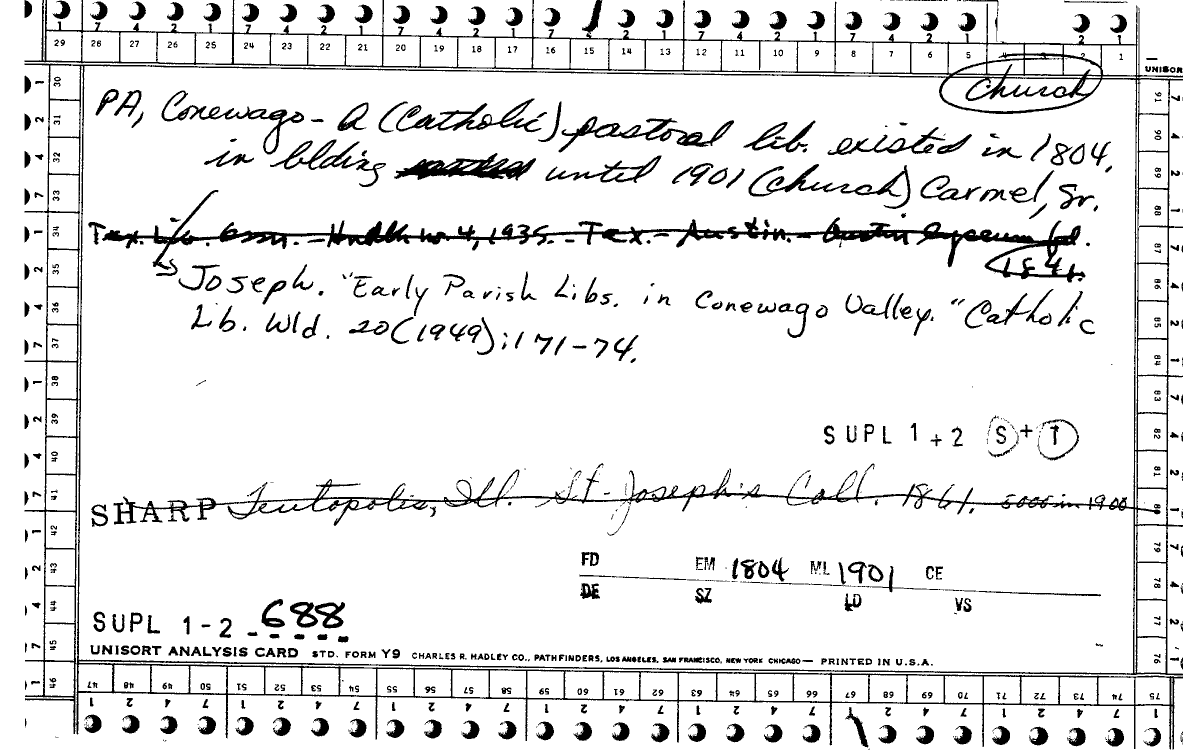 29 28 27 26 25 24 23 22 21 20 19 18 17 16 15 14 13 12 11 10 9 8 7 6 5 1
UNISORT
church
PA, Conewago - A (Catholic) pastoral lib. existed in 1804,
in blding until 1901 (church) Carmel, Sr.
Tex. Lib. Assn. - Hndbk no. 4, 1935. - Tex. - Austin. - Austin Lyceum fd.
1841.
Joseph. "Early Parish Libs. in Conewago Valley." Catholic
Lib. Wld. 20(1949):171-74.
SUPL 1+2 S+T
SHARP Teutopolis, Ill. St. Joseph's Coll. 1861. 5000 in 1900
FD EM 1804 ML 1901 CE
DE SZ LD VS
SUPL 1-2 688
UNISORT ANALYSIS CARD STD. FORM Y9 CHARLES R. HADLEY CO., PATHFINDERS, LOS ANGELES, SAN FRANCISCO, NEW YORK CHICAGO — PRINTED IN U.S.A.
47 48 49 50 51 52 53 54 55 56 57 58 59 60 61 62 63 64 65 66 67 68 69 70 71 72 73 74 75